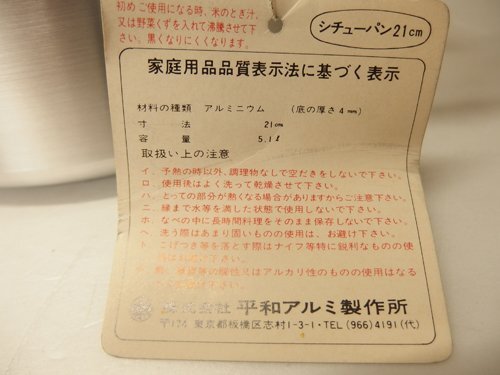 初めご使用になる時、米のとぎ汁
又は野菜くずを入れて沸騰させて下
さい。黒くなりにくくなります。
シチューパン21cm
家庭用品品質表示法に基づく表示
材料の種類 アルミニウム (底の厚さ4mm)
寸法 21cm
容量 5.1ℓ
取扱い上の注意
イ、予熱の時以外、調理物なしで空だきをしないで下さい。
ロ、使用後はよく洗って乾燥させて下さい。
ハ、とっての部分が熱くなる場合がありますからご注意下さい。
ニ、縁まで水等を満した状態で使用しないで下さい。
ホ、なべの中に長時間料理をそのまま保存しないで下さい。
ヘ、洗う際はあまり固いものの使用は、お避け下さい。
ト、こげつき等を落とす際はナイフ等特に鋭利なものの使
用は
酸性又はアルカリ性のものの使用はなる
株式会社 平和アルミ製作所
〒174 東京都板橋区志村1-3-1・TEL(966)4191(代)